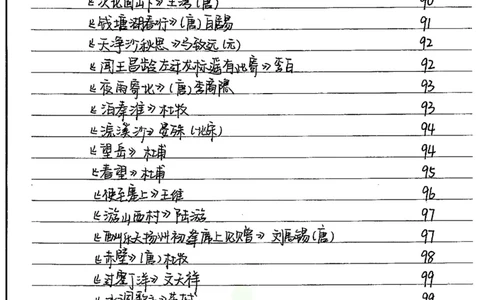 《次北固山下》王湾(唐) 90
《钱塘湖春行》(唐)白居易 91
《天净沙秋思》马致远(元) 92
《闻王昌龄左迁龙标遥有此寄》李白 92
《夜雨寄北》(唐)李商隐 93
《泊秦淮》杜牧 93
《浣溪沙》晏殊(北宋) 94
《望岳》杜甫 94
《春望》杜甫 95
《使至塞上》王维 96
《游山西村》陆游 97
《酬乐天扬州初逢席上见赠》刘禹锡(唐) 97
《赤壁》(唐)杜牧 98
《过零丁洋》文天祥 99
《水调歌头》苏轼 99